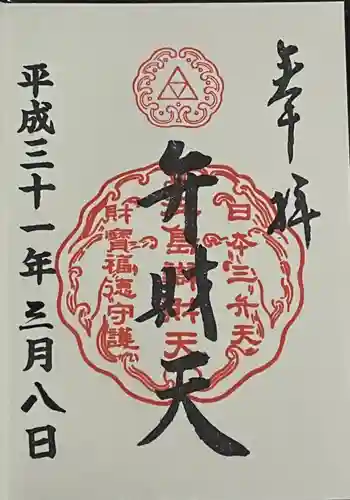 奉拝
日本三弁天
江島辨財天
財寶福徳守護
弁財天
平成三十一年三月八日